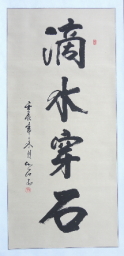 滴水穿石
壬辰年